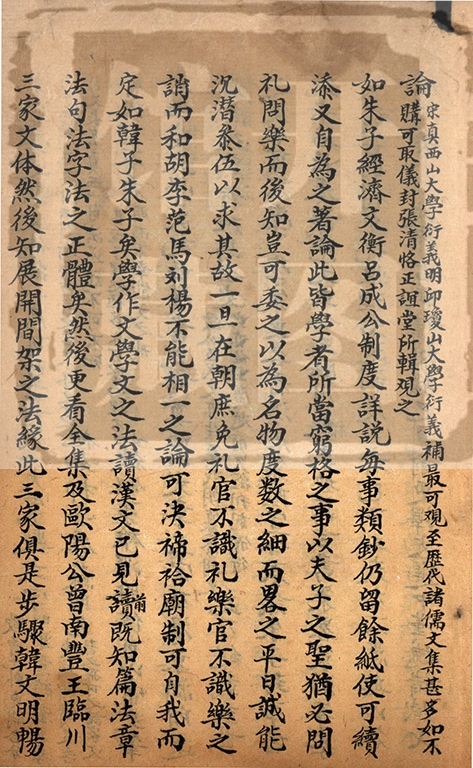 論
宋真西山大學衍義明邱瓊山大學衍義補最可观至歷代諸儒文集甚多如不
購可取儀封張清恪正誼堂所輯观之
如朱子經濟文衡呂成公制度詳説每事類鈔仍留餘紙使可續
添又自為之著論此皆學者所當窮格之事以夫子之聖猶必問
礼問樂而後知豈可委之以為名物度数之細而畧之平日誠能
沉潛叅伍以求其故一旦在朝庶免礼官不識礼樂官不識樂之
誚而和胡李范馬刘楊不能相一之論可决禘祫廟制可自我而
定如韓子朱子矣學作文學文之法讀漢文已見前既知篇法章
法句法字法之正體矣然後更看全集及歐陽公曾南豐王臨川
三家文体然後知展開間架之法緣此三家俱是步驟韓文明暢